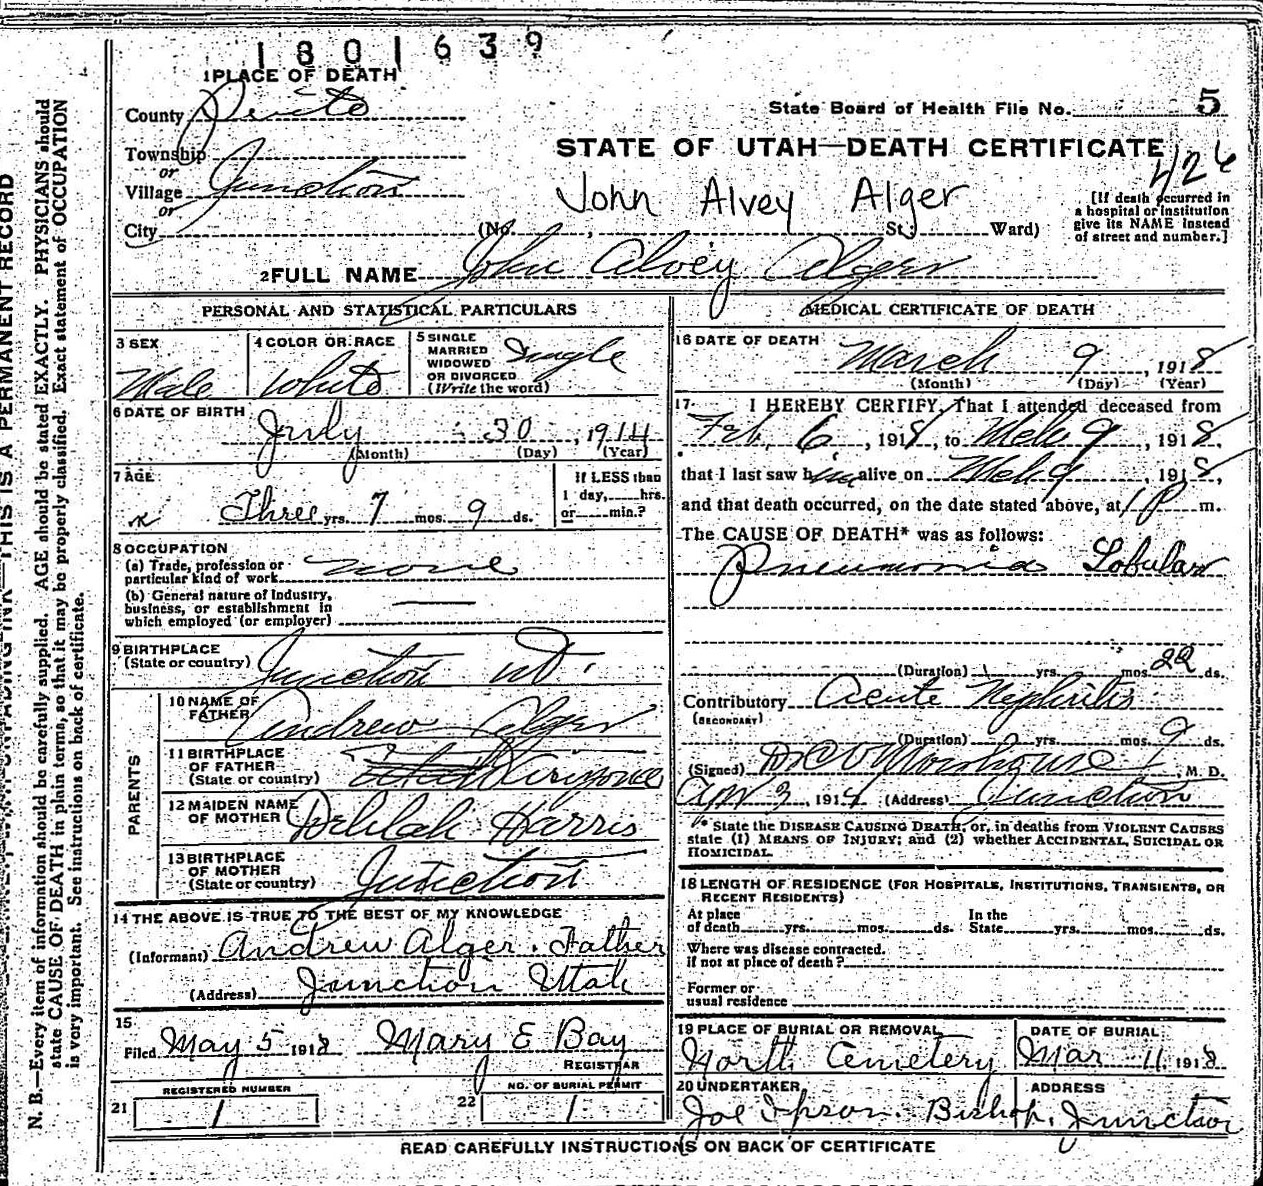 1801639
1 PLACE OF DEATH
County Piute
State Board of Health File No. 5
Township
or
Village Junction
or
City
STATE OF UTAH—DEATH CERTIFICATE
426
John Alvey Alger
(No. , St; Ward)
[If death occurred in
a hospital or institution
give its NAME instead
of street and number.]
2 FULL NAME John Alvey Alger
PERSONAL AND STATISTICAL PARTICULARS
3 SEX
Male
4 COLOR OR RACE
White
5 SINGLE
MARRIED
WIDOWED
OR DIVORCED
(Write the word)
Single
6 DATE OF BIRTH
July 30, 1914
(Month) (Day) (Year)
7 AGE
Three yrs. 7 mos. 9 ds.
If LESS than
1 day, hrs.
or min.?
8 OCCUPATION
(a) Trade, profession or
particular kind of work none
(b) General nature of Industry,
business, or establishment in
which employed (or employer)
9 BIRTHPLACE
(State or country) Junction Ut.
PARENTS
10 NAME OF
FATHER Andrew Alger
11 BIRTHPLACE
OF FATHER
(State or country) Utah Arizona
12 MAIDEN NAME
OF MOTHER Delilah Harris
13 BIRTHPLACE
OF MOTHER
(State or country) Junction
14 THE ABOVE IS TRUE TO THE BEST OF MY KNOWLEDGE
(Informant) Andrew Alger. Father
(Address) Junction Utah
15
Filed May 5 1918 Mary E Bay
REGISTRAR
REGISTERED NUMBER
21 1
NO. OF BURIAL PERMIT
22 1
MEDICAL CERTIFICATE OF DEATH
16 DATE OF DEATH
March 9, 1918
(Month) (Day) (Year)
17 I HEREBY CERTIFY, That I attended deceased from
Feb. 6, 1918, to Mch 9, 1918,
that I last saw him alive on Mch 9, 1918,
and that death occurred, on the date stated above, at 1 P m.
The CAUSE OF DEATH* was as follows:
Pneumonia Lobular
(Duration) yrs. mos. 22 ds.
Contributory Acute Nephritis
(SECONDARY)
(Duration) yrs. mos. 9 ds.
(Signed) , M. D.
Apr 3, 1914 (Address) Junction
* State the DISEASE CAUSING DEATH; or, in deaths from VIOLENT CAUSES
state (1) MEANS OF INJURY; and (2) whether ACCIDENTAL, SUICIDAL OR
HOMICIDAL.
18 LENGTH OF RESIDENCE (FOR HOSPITALS, INSTITUTIONS, TRANSIENTS, OR
RECENT RESIDENTS)
At place
of death yrs. mos. ds.
In the
State yrs. mos. ds.
Where was disease contracted.
if not at place of death?
Former or
usual residence
19 PLACE OF BURIAL OR REMOVAL
North Cemetery
DATE OF BURIAL
Mar 11 1918
20 UNDERTAKER
Joe Ipson. Bishop.
ADDRESS
Junction
READ CAREFULLY INSTRUCTIONS ON BACK OF CERTIFICATE
THIS IS A PERMANENT RECORD
N. B.—Every item of information should be carefully supplied. AGE should be stated EXACTLY. PHYSICIANS should
state CAUSE OF DEATH in plain terms, so that it may be properly classified. Exact statement of OCCUPATION
is very important. See instructions on back of certificate.